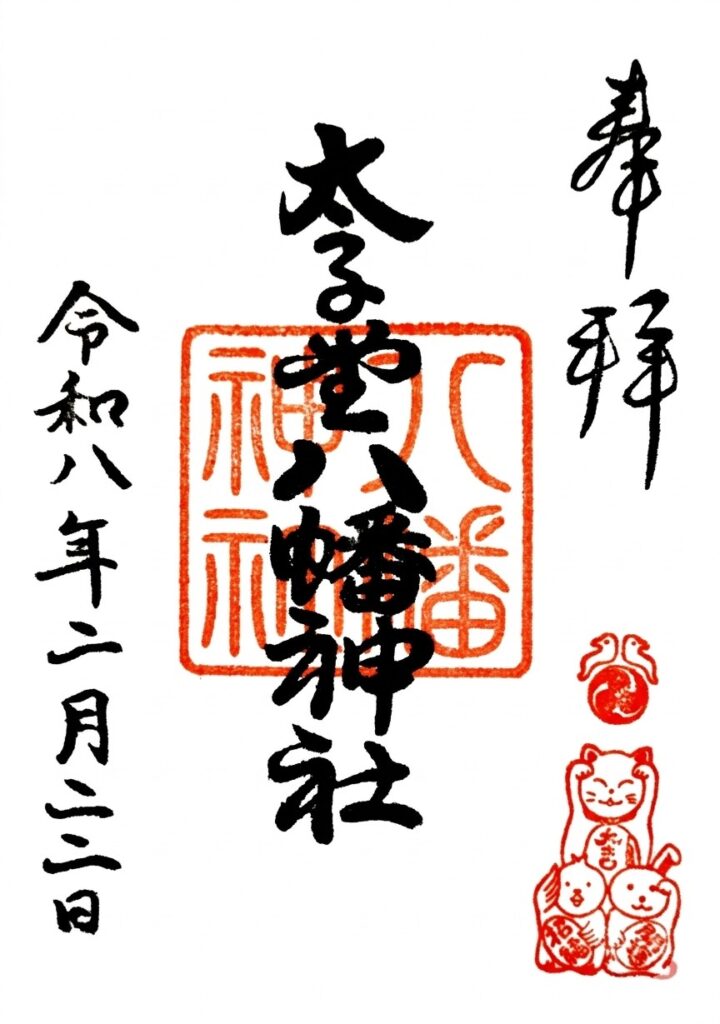 奉拝
太子堂八幡神社
八幡
神社
大吉
招福
令和八年二月二二日